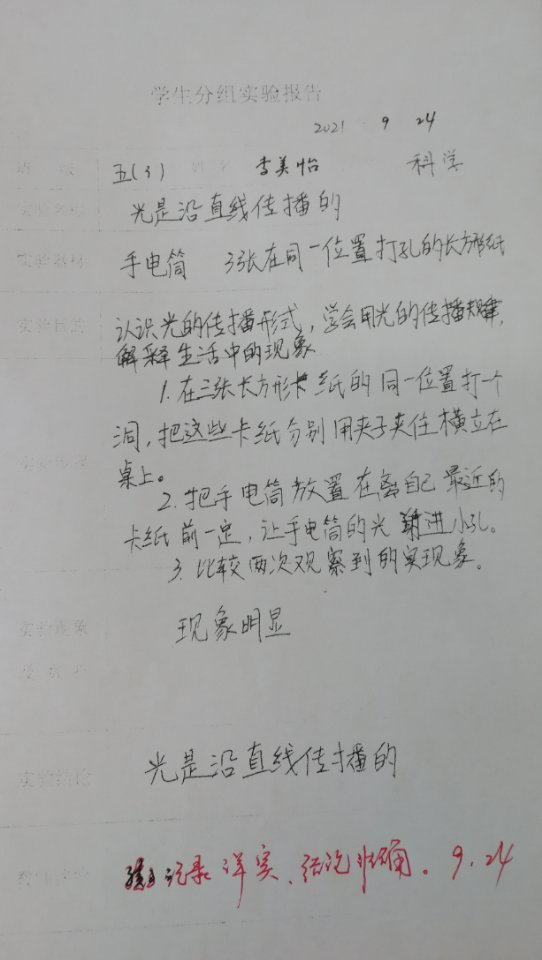 学生分组实验报告
2021 9 24
五(3) 李美怡 科学
实验名称 光是沿直线传播的
实验器材 手电筒 3张在同一位置打孔的长方形纸
实验目的 认识光的传播形式，学会用光的传播规律，
解释生活中的现象
1.在三张长方形卡纸的同一位置打一个
洞，把这些卡纸分别用夹子夹住横立在
桌上。
2.把手电筒放置在离自己最近的
卡纸前一定，让手电筒的光射进小孔。
3.比较两次观察到的实现象。
实验现象 现象明显
实验结论 光是沿直线传播的
记录详实、结论准确。9.24